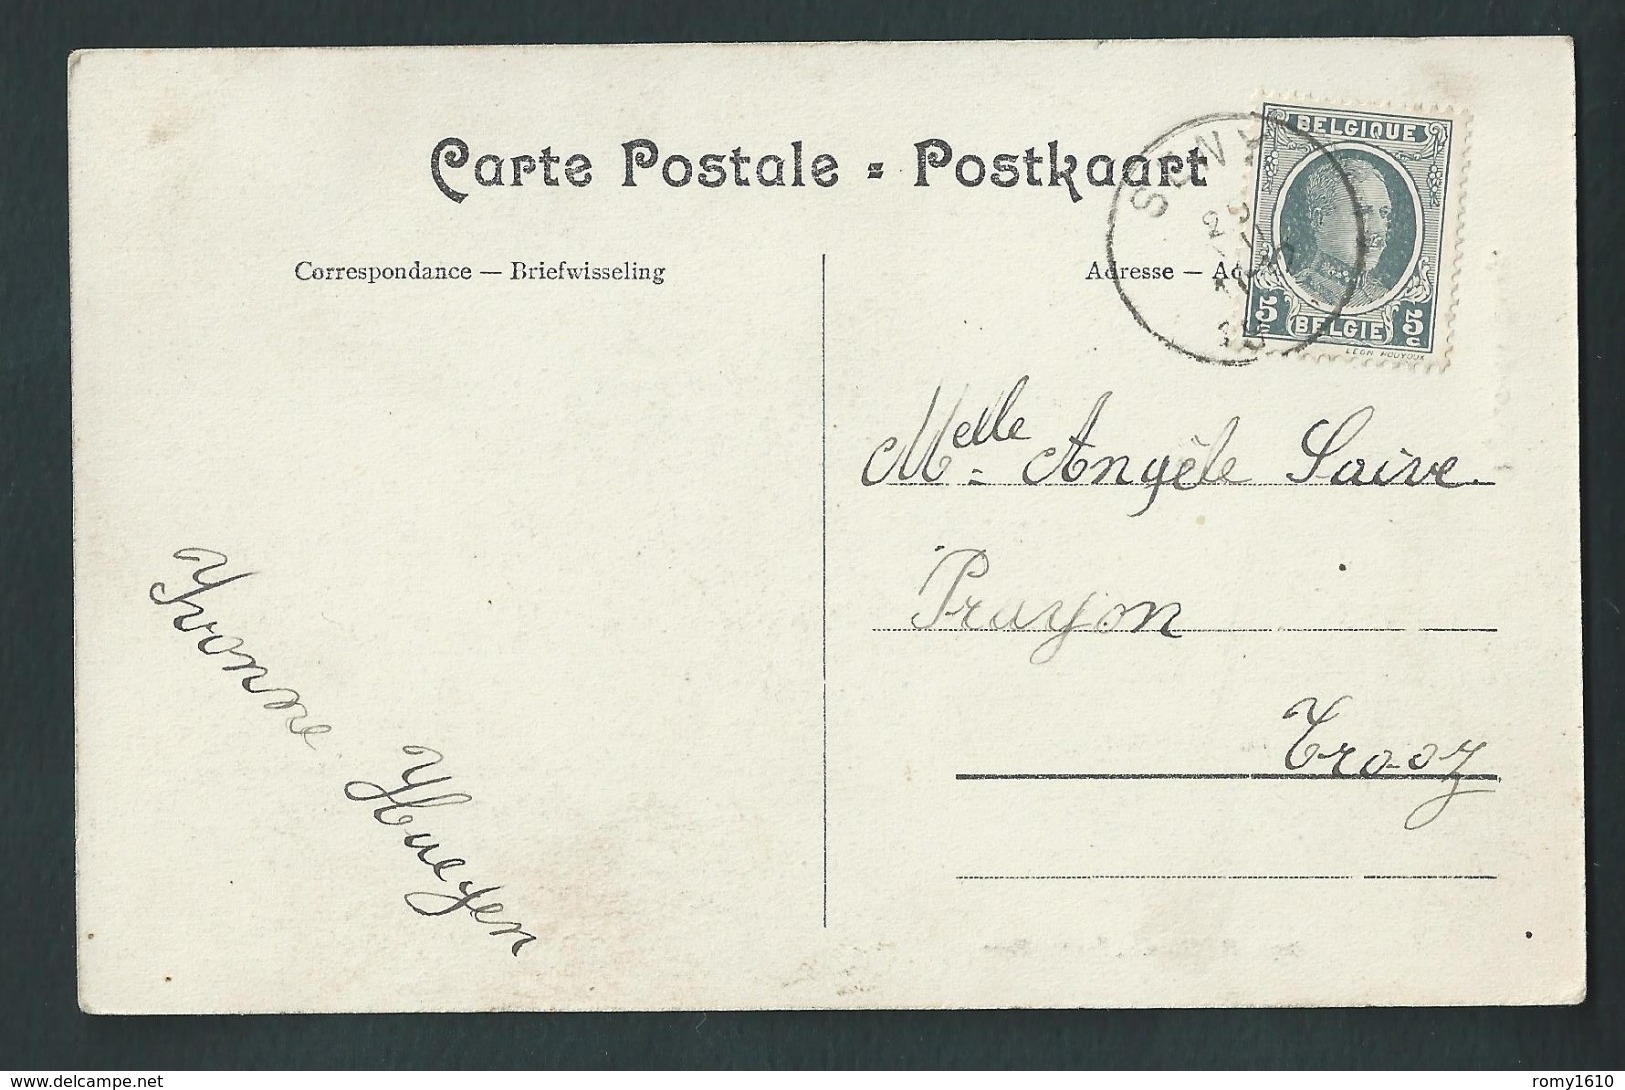 Carte Postale = Postkaart
Correspondance — Briefwisseling
Adresse —
BELGIQUE
5 c BELGIE 5 c
LEON HOUYOUX
Melle Angèle Saive.
Prayon
Trooz
Yvonne
Hueyen
delcampe.net
romy1610